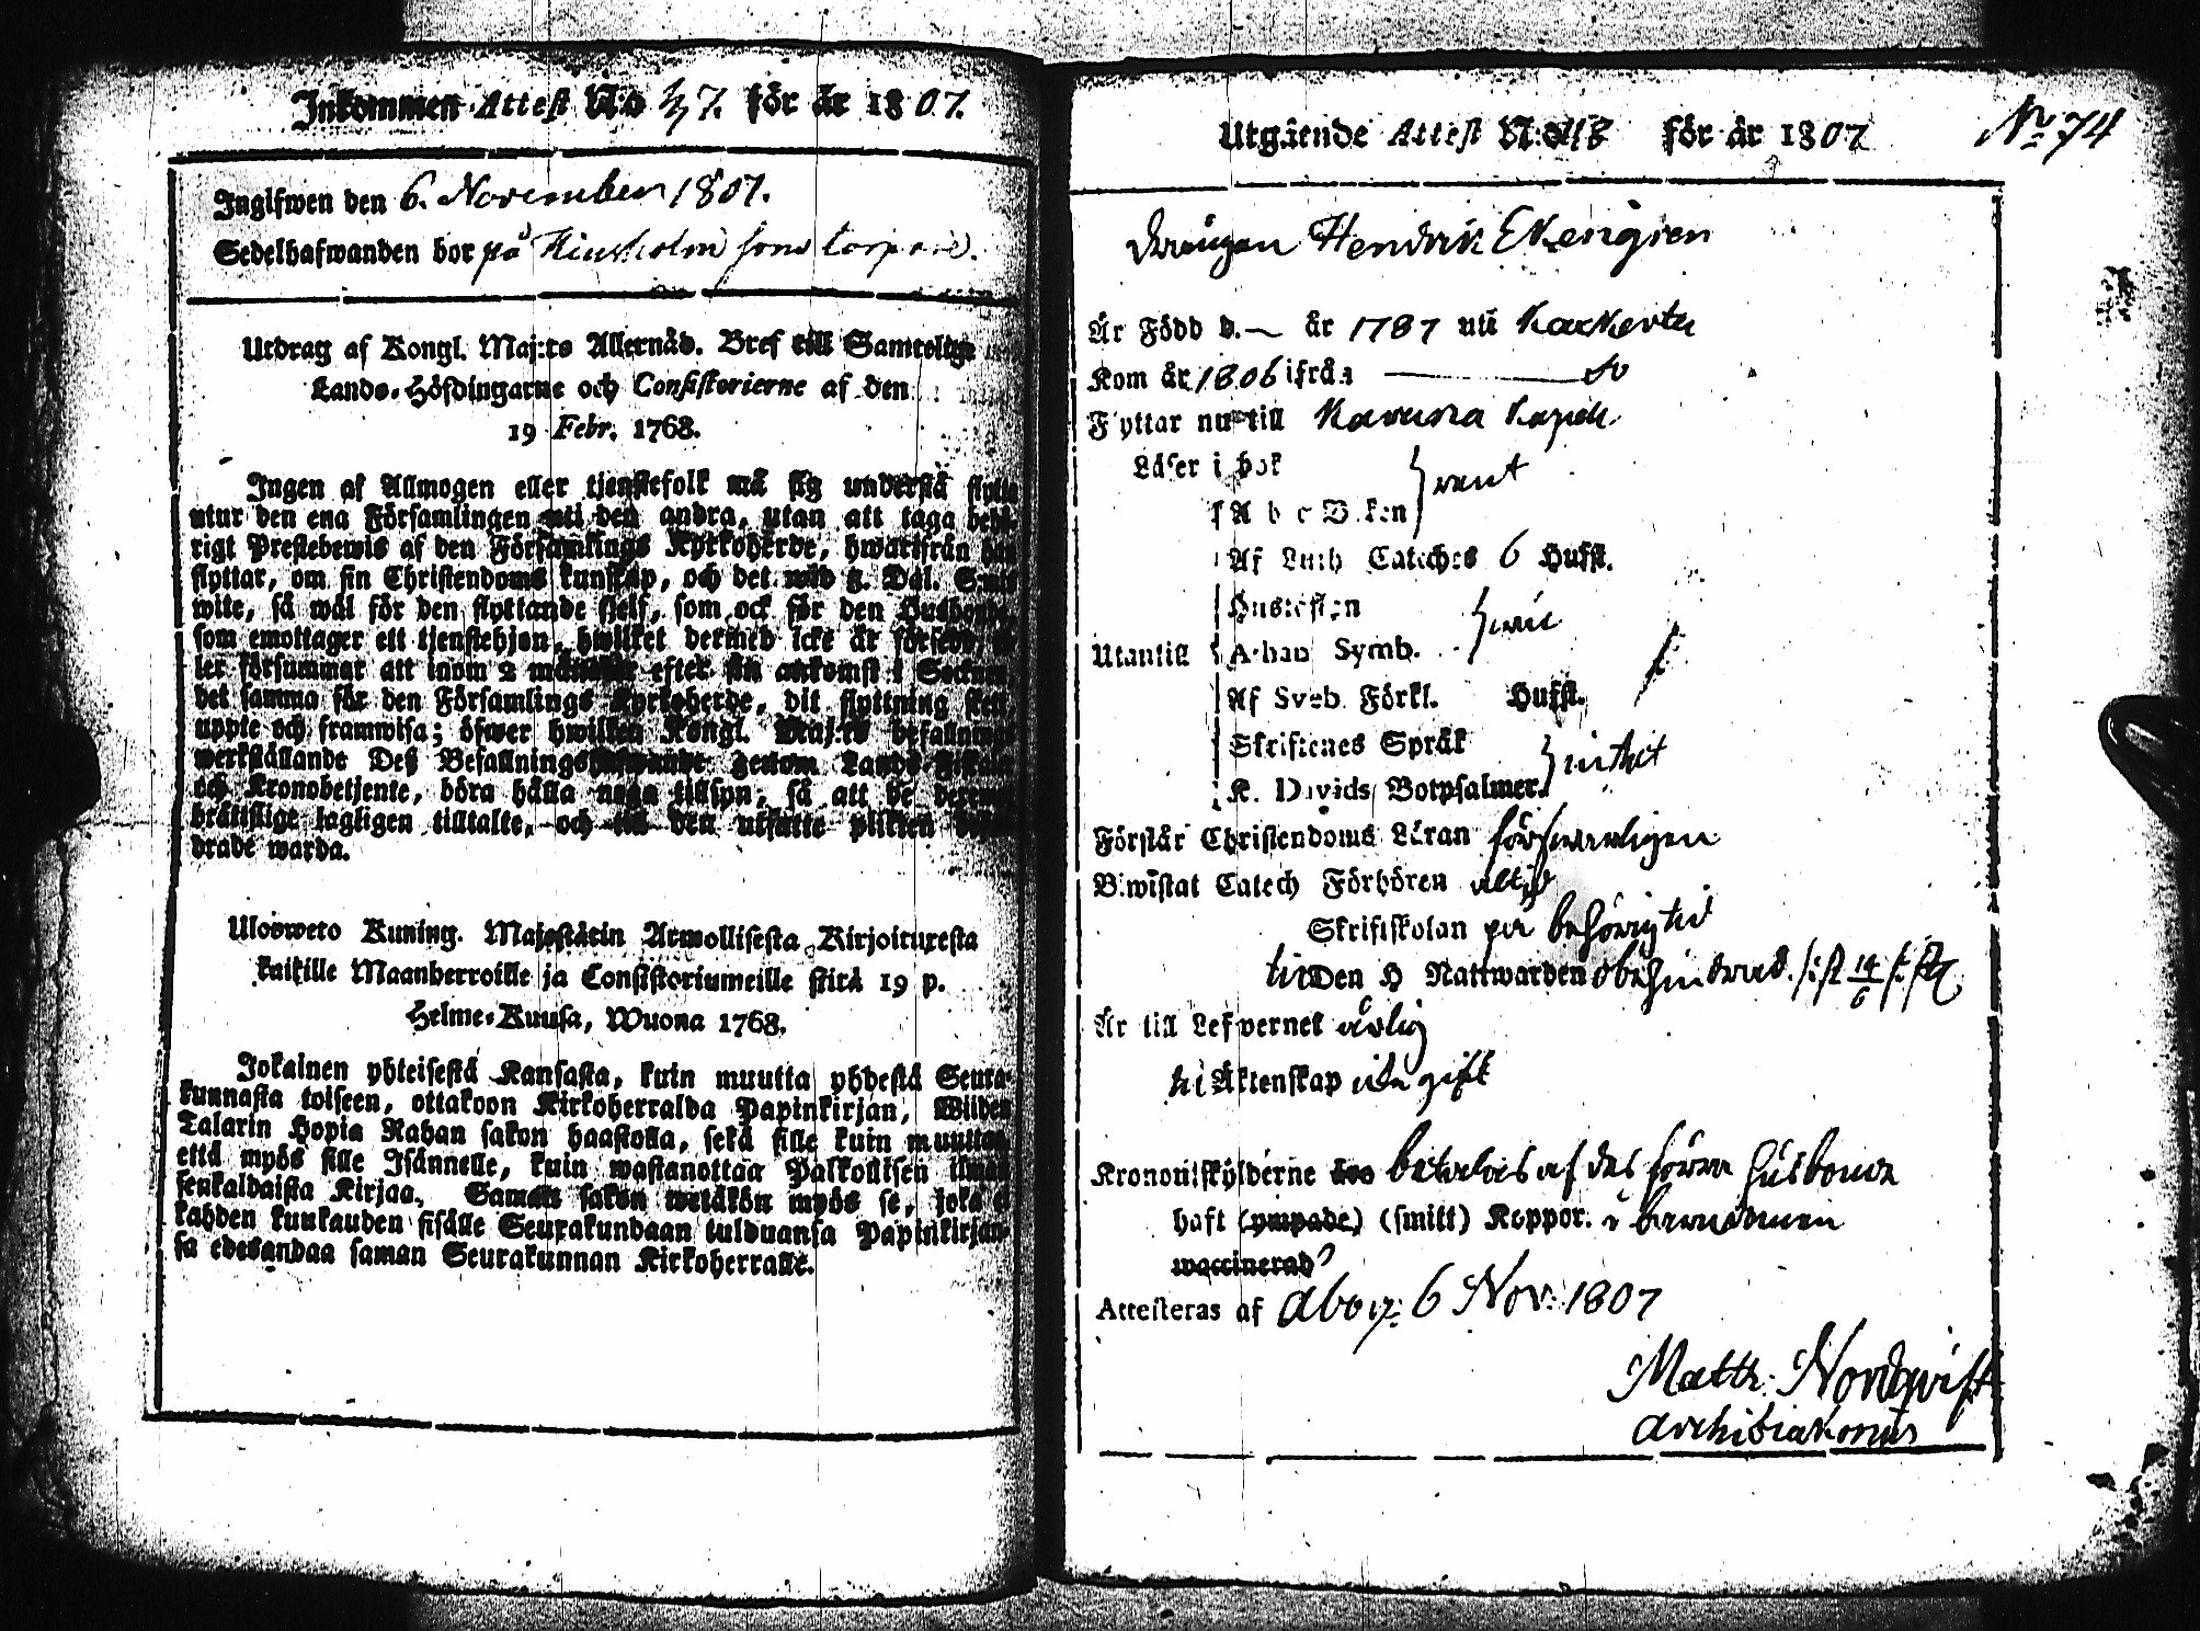 Inkommen Attest N:o 7. för år 1807.
Ingifwen den 6. November 1807.
Sedelhafwanden bor på som torpare.
Utdrag af Kongl. Maj:ts Allernåd. Bref till Samtelige
Lands-Höfdingarne och Consistorierne af den
19 Febr. 1768.
Ingen af Allmogen eller tjenstefolk må sig understå flytta
utur den ena Församlingen uti den andra, utan att taga behö-
rigt Prestebewis af den Församlings Kyrkoherde, hwarifrån han
flyttar, om sin Christendoms kunskap, och det wid 5. Dal. Smts
wite, så wäl för den flyttande sjelf, som ock för den Husbonde
som emottager ett tjenstehjon, hwilket dermed icke är försedt, el-
ler försummar att inom 2 månader efter sin ankomst i Socknen
det samma för den Församlings Kyrkoherde, dit flyttning sker,
uppte och framwisa; öfwer hwilken Kongl. Maj:ts befallning
werkställande Deß Befallningshafwande genom Lands-Fiskaler
och Kronobetjente, böra hålla noga tillsyn, så att de deremot
bråttslige lagligen tilltalte, och till den utsatte plikten
drade warda.
Ulosweto Kuning. Majestätin Armollisesta Kirjoituxesta
kaikille Maanherroille ja Consistoriumeille siitä 19 p.
Helme-Kuusa, Wuona 1768.
Jokainen yhteisestä Kansasta, kuin muutta yhdestä Seura-
kunnasta toiseen, ottakoon Kirkoherralda Papinkirjan, Wiiden
Talarin Hopia Rahan sakon haastolla, sekä sille kuin muuttaa
että myös sille Isännelle, kuin wastanottaa Palkollisen ilman
senkaldaista Kirjaa. Saman sakon wetäkön myös se, joka ei
kahden kuukauden sisälle Seurakundaan tulduansa Papinkirjan-
sa edesandaa saman Seurakunnan Kirkoherralle.
No 74
Utgående Attest N:o 118 för år 1807
Drängen Hendrik Ekengren
Är Född d. — år 1787 uti Kackerta
Kom år 1806 ifrån — do
Flyttar nu till Karuna Kapell
Läser i bok
A b c Boken } rent
Af Luth Cateches 6 Hufst.
Hustaflan
Utantill Athan Symb.
Af Sveb. Förkl. Hufst.
Skriftenes Språk
K. Davids Botpsalmer. } intet
Förstår Christendoms Läran försvarligen
Biwistat Catech Förhören altid
Skriftskolan på behörig tid
till Den H Nattwarden obehindrad. sist
Är till Lefvernet ärlig
till Äktenskap icke gift
Kronoutskylderne betalas af des förra husbonde
haft (ympade) (smitt) Koppor. i barndomen
waccinerad
Attesteras af Åbo 6 Nov. 1807
Matth: Nordqvist
Archidiakonus